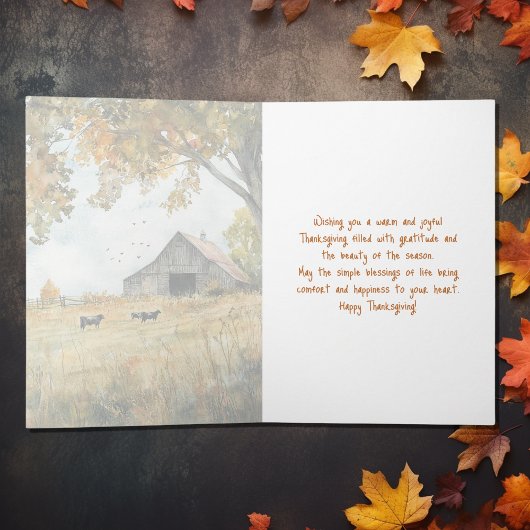 Wishing you a warm and joyful
Thanksgiving filled with gratitude and
the beauty of the season.
May the simple blessings of life bring
comfort and happiness to your heart.
Happy Thanksgiving!